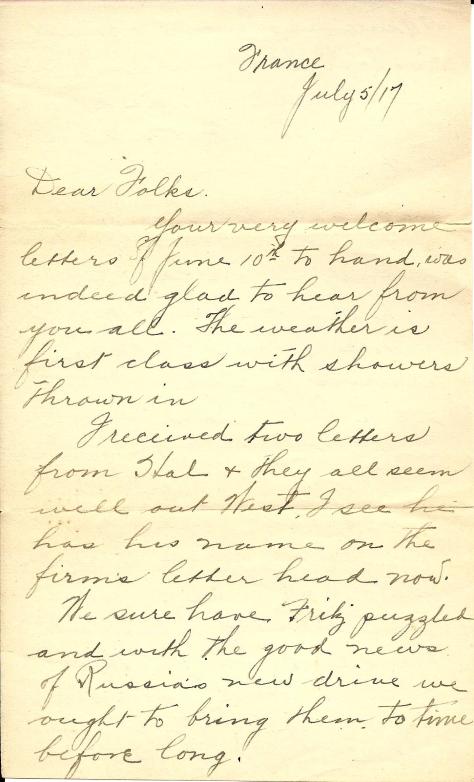 France
July 5/17
Dear Folks.
Your very welcome
letters of June 10th to hand, was
indeed glad to hear from
you all. The weather is
first class with showers
thrown in
I received two letters
from Hal & they all seem
well out West. I see he
has his name on the
firms letter head now.
We sure have Fritz puzzled
and with the good news
of Russia's new drive we
ought to bring them to time
before long.